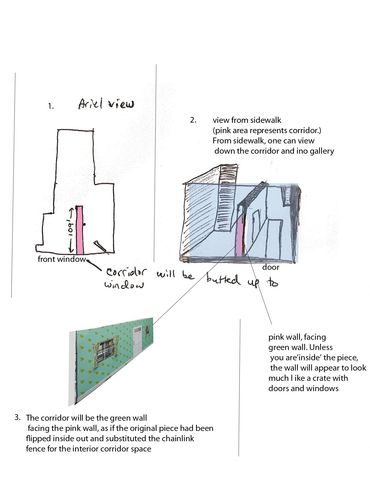 1. Ariel view
104'
front window
corridor will be butted up to
window
2. view from sidewalk
(pink area represents corridor.)
From sidewalk, one can view
down the corridor and ino gallery
door
pink wall, facing
green wall. Unless
you are'inside' the piece,
the wall will appear to look
much l ike a crate with
doors and windows
3. The corridor will be the green wall
facing the pink wall, as if the original piece had been
flipped inside out and substituted the chainlink
fence for the interior corridor space